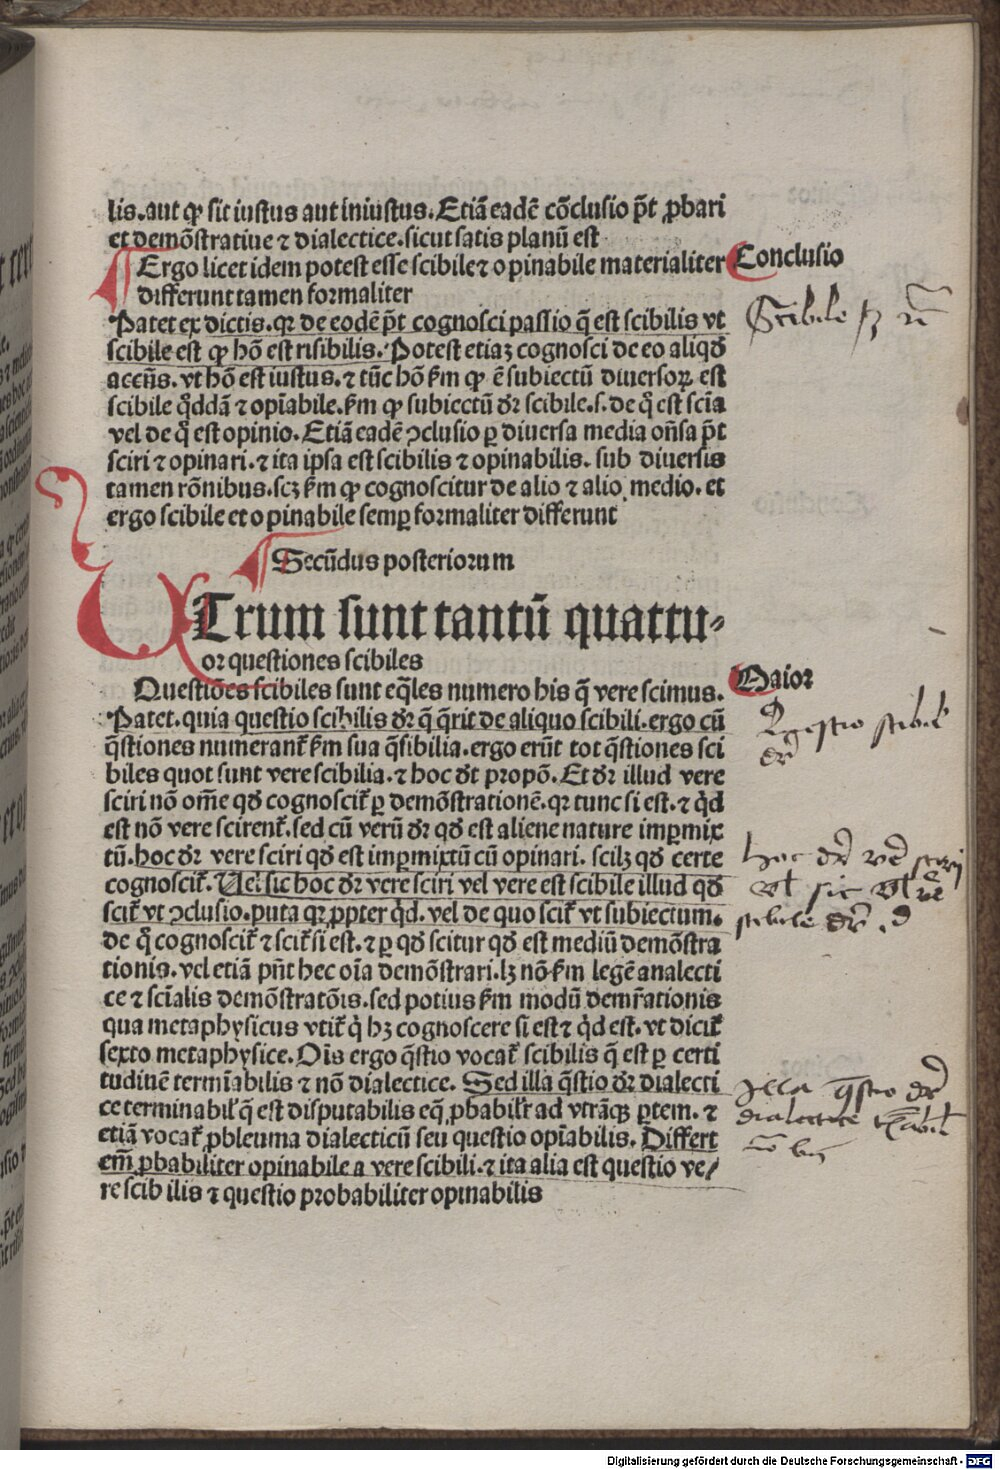 lis.aut ꝙ sit iustus aut iniustus.Etiã eadẽ cõclusio p̃t ꝓbari
et demõstratiue ⁊ dialectice.sicut satis planũ est
Ergo licet idem potest esse scibile⁊ opinabile materialiter
Conclusio
differunt tamen formaliter
Patet ex dictis.qꝛ de eodẽ p̃t cognosci passio q̃ est scibilis vt
scibile est ꝙ hõ est risibilis. Potest etiaꝫ cognosci de eo aliqd̃
accñs.vt hõ est iustus.⁊ tũc hõ k̃m ꝙ ẽ subiectũ diuersoꝝ est
scibile q̃ddã ⁊ opĩabile.k̃m ꝙ subiectũ dr̃ scibile.s.de q̃ est scĩa
vel de q̃ est opinio.Etiã eadẽ ꝯclusio ꝑ diuersa media oñsa p̃t
sciri ⁊ opinari.⁊ ita ipsa est scibilis ⁊ opinabilis. sub diuersis
tamen rõnibus.scꝫ k̃m ꝙ cognoscitur de alio ⁊ alio medio.et
ergo scibile et opinabile semꝑ formaliter differunt
Secũdus posteriorum
UTrum sunt tantũ quattu-
or questiones scibiles
Questiões scibiles sunt eq̃les numero his q̃ vere scimus.
Maior
Patet.quia questio scibilis dr̃ q̃ q̃rit de aliquo scibili.ergo cũ
q̃stiones numerant᷑ k̃m sua q̃sibilia.ergo erũt tot q̃stiones sci
biles quot sunt vere scibilia.⁊ hoc dt̃ propõ.Et dr̃ illud vere
sciri nõ om̃e qd̃ cognoscit᷑ ꝑ demõstrationẽ.qꝛ tunc si est.⁊ q̃d
est nõ vere scirent᷑.sed cũ verũ dr̃ qd̃ est aliene nature imꝑmix
tũ.hoc dr̃ vere sciri qd̃ est imꝑmixtũ cũ opinari. scilꝫ qd̃ certe
cognoscit᷑.Uel sic hoc dr̃ vere sciri vel vere est scibile illud qd̃
scit᷑ vt ꝯclusio.puta qꝛ ꝓpter q̃d.vel de quo scit᷑ vt subiectum.
de q̃ cognoscit᷑ ⁊ scit᷑ si est.⁊ ꝑ qd̃ scitur qd̃ est mediũ demõstra
tionis.vel etiã pñt hec oĩa demõstrari.lꝫ nõ k̃m legẽ analecti
ce ⁊ scĩalis demõstratõis.sed potius k̃m modũ demr̃ationis
qua metaphysicus vtit᷑ q̃ hꝫ cognoscere si est⁊ q̃d est.vt dicit᷑
sexto metaphysice.Oĩs ergo q̃stio vocat᷑ scibilis q̃ est ꝑ certi
tudinẽ termĩabilis ⁊ nõ dialectice. Sed illa q̃stio dr̃ dialecti
ce terminabil᷑ q̃ est disputabilis eq̃ ꝓbabilr̃ ad vtrãqꝫ ꝑtem.⁊
etiã vocat᷑ ꝓbleuma dialecticũ seu questio opĩabilis. Differt
em̃ ꝓbabiliter opinabile a vere scibili.⁊ ita alia est questio ve/
re scibilis ⁊ questio probabiliter opinabilis
Questio scibil
dr̃
hoc dr̃ verẽ
vel sic vel verẽ
scibile dr̃
Illa q̃stio dr̃
dialectice
Digitalisierung gefördert durch die Deutsche Forschungsgemeinschaft - DFG